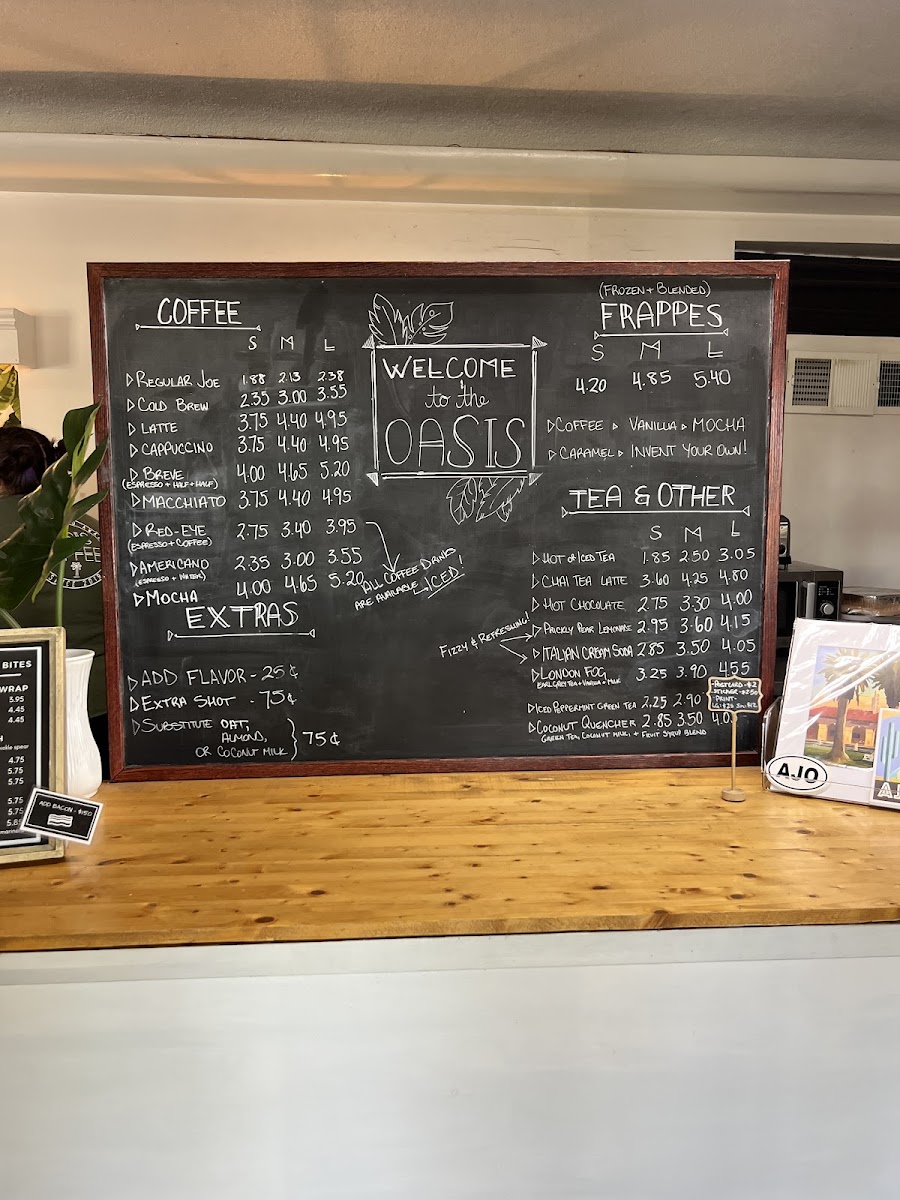 COFFEE
S M L
REGULAR JOE 1.88 2.13 2.38
COLD BREW 2.35 3.00 3.55
LATTE 3.75 4.40 4.95
CAPPUCCINO 3.75 4.40 4.95
BREVE 4.00 4.65 5.20
(ESPRESSO + HALF + HALF)
MACCHIATO 3.75 4.40 4.95
RED-EYE 2.75 3.40 3.95
(ESPRESSO + COFFEE)
AMERICANO 2.35 3.00 3.55
(ESPRESSO + WATER)
MOCHA 4.00 4.65 5.20
ALL COFFEE DRINKS
ARE AVAILABLE ICED!
EXTRAS
ADD FLAVOR - 25¢
EXTRA SHOT - 75¢
SUBSTITUTE OAT,
ALMOND,
OR COCONUT MILK } 75¢
WELCOME
to the
OASIS
(FROZEN + BLENDED)
FRAPPES
S M L
4.20 4.85 5.40
COFFEE VANILLA MOCHA
CARAMEL INVENT YOUR OWN!
TEA & OTHER
S M L
HOT or ICED TEA 1.85 2.50 3.05
CHAI TEA LATTE 3.60 4.25 4.80
HOT CHOCOLATE 2.75 3.30 4.00
PRICKLY PEAR LEMONADE 2.95 3.60 4.15
FIZZY & REFRESHING!
ITALIAN CREAM SODA 2.85 3.50 4.05
LONDON FOG 3.25 3.90 4.55
EARL GREY TEA + VANILLA + MILK
ICED PEPPERMINT GREEN TEA 2.25 2.90
COCONUT QUENCHER 2.85 3.50 4.0
GREEN TEA, COCONUT MILK, + FRUIT SYRUP BLEND
BITES
WRAP
3.95
4.45
4.45
4.75
5.75
5.75
5.75
5.75
5.85
ADD BACON - $1.50
POSTCARD - $2
STICKER - $2.50
PRINT -
AJO